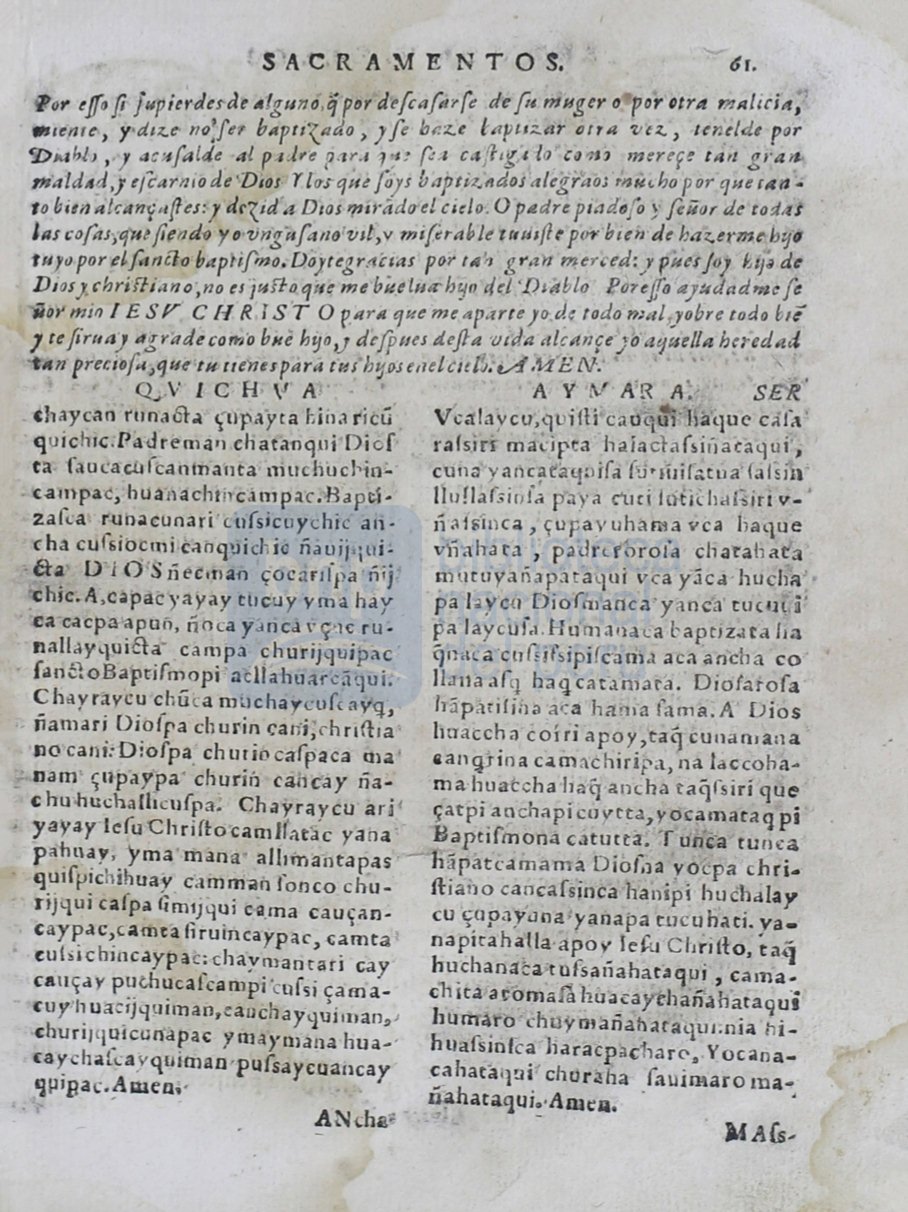 SACRAMENTOS. 61.
Por eſſo ſi ſupierdes de alguno, q̃ por deſcaſarſe de ſu muger o por otra malicia,
miente, y dize no ſer baptizado, y ſe haze baptizar otra vez, tenelde por
Diablo, y acuſalde al padre para que ſea caſtigado como mereçe tan gran
maldad, y eſcarnio de Dios Y los que ſoys baptizados alegraos mucho por que tan-
to bien alcançaſtes: y dezid a Dios mirãdo el cielo. O padre piadoſo y ſeñor de todas
las coſas, que ſiendo yo vn guſano vil, y miſerable tuuiſte por bien de hazerme hijo
tuyo por el ſancto baptiſmo. Doyte gracias por tan gran merced: y pues ſoy hijo de
Dios y chriſtiano, no es juſto que me buelua hijo del Diablo Por eſſo ayudadme ſe
ñor mio IESV CHRISTO para que me aparte yo de todo mal, y obre todo biẽ
y te ſirua y agrade como buẽ hijo, y deſpues deſta vida alcançe yo aquella heredad
tan precioſa, que tu tienes para tus hijos en el cielo. AMEN.
QVICHVA
chaycan runacta çupayta hinaricũ
quichic. Padreman chatanqui Dioſ
ta ſaucacuſcanmanta muchuchin-
campac, huanachincampac. Bapti-
zaſca runacunari cuſsicuychic an-
cha cuſsiocmi canquichic ñauijqui-
cta DIOS ñecman çocariſpa ñij
chic. A, capac yayay tucuy yma hay
ca cacpa apun, ñoca yanca vçuc ru-
nallayquicta campa churijquipac
ſancto Baptiſmopi acllahuarcãqui.
Chayraycu chũca muchaycuſcayq̃,
ñamari Dioſpa churin cani, chriſtia
no cani: Dioſpa churin caſpaca ma
nam çupaypa churin cancay ña-
chu huchallicuſpa. Chayraycu ari
yayay Ieſu Chriſto camllatac yana
pahuay, yma mana allimantapas
quiſpichihuay camman ſonco chu-
rijqui caſpa ſimijqui cama cauçan-
caypac, camta ſiruincaypac, camta
cuſsichincaypac: chaymantari cay
cauçay puchucaſcampi cuſsi çama-
cuy huacijquiman, cauchayquiman,
churijquicunapac ymaymana hua-
caychaſcayquiman puſsaycuancay
quipac. Amen.
ANcha
AYMARA. SER
Vcalaycu, quiſti cauqui haque caſa
raſsiri macipta halactaſsiñataqui,
cuna yancataquiſa ſutiuiſatua ſaſsin
lluſlaſsinſa paya cuti ſutichaſsiri v-
ñaſsinca, çupayuhama vca haque
vñahata, padreroroſa chatahata
mutuyañapataqui vca yãca hucha
pa laycu Dioſmanca yanca tucutĩ
pa laycuſa. Humanaca baptizata ha
q̃naca cuſsiſsipiſcama aca ancha co
llana aſq haq̃ catamata. Dioſaroſa
hãpatiſina aca hama ſama. A Dios
huaccha coiri apoy, taq̃ cunamana
cangrina camachiripa, na laccoha-
ma huaccha haq̃ ancha taq̃ſsiri que
çatpi anchapi cuytta, yocamataq pi
Baptiſmona catutta. Tunca tunca
hãpatcamama Dioſna yocpa chri-
ſtiano cancaſsinca hanipi huchalay
cu çupayana yanapa tucuhati. ya-
napitahalla apoy Ieſu Chriſto, taq̃
huchanaca tuſsañahataqui, cama-
chita aromaſa huacaychañahataqui
humaro chuymañahataqui: nia hi-
huaſsinſca haracpacharo, Yocana-
cahataqui churaha ſauimaro ma-
ñahataqui. Amen.
MAſs-